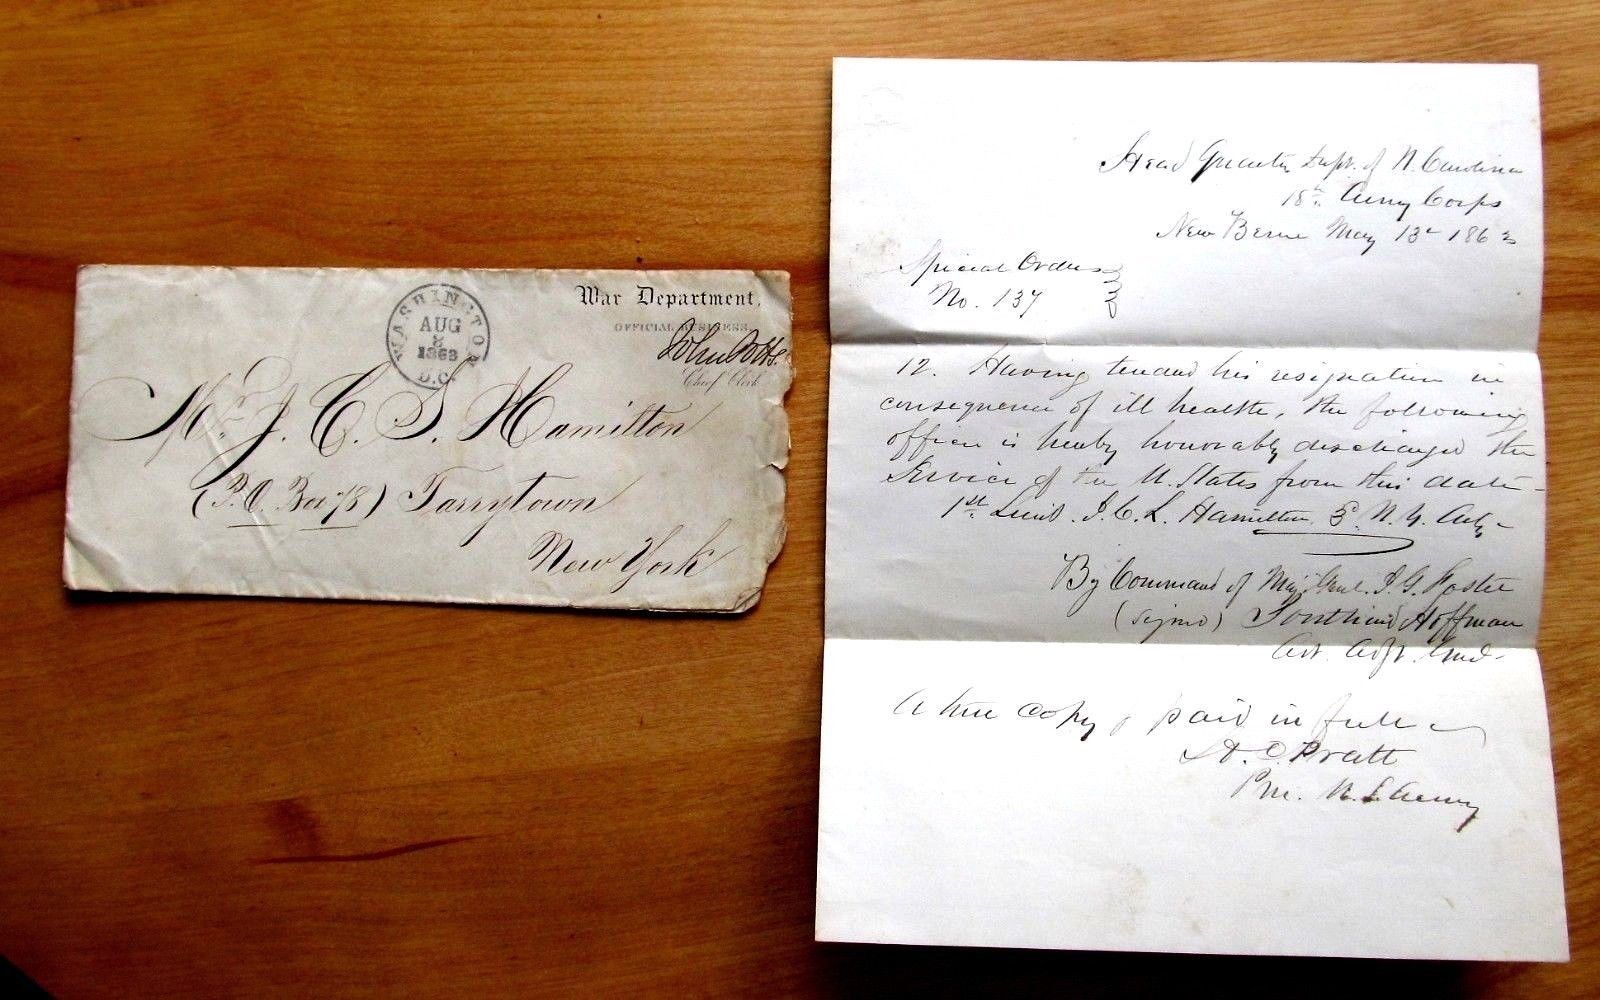 War Department,
OFFICIAL BUSINESS.
John Potts.
Chief Clerk
WASHINGTON
AUG
8
1863
D.C.
Mr. J. C. S. Hamilton
(P.O. Box 78) Tarrytown
New York
Head Quarters Dept. of N. Carolina
18th Army Corps
New Berne May 13th 1863
Special Orders
No. 137
12. Having tendered his resignation in
consequence of ill health, the following
officer is hereby honorably discharged the
Service of the U. States from this date -
1st Lieut. J. C. L. Hamilton 3d N. Y. Arty -
By Command of Maj Genl. J. G. Foster
(Signed) Southard Hoffman
Asst. Adjt. Genl -
A true copy paid in full
C. Pratt
Pm. U. S. Army